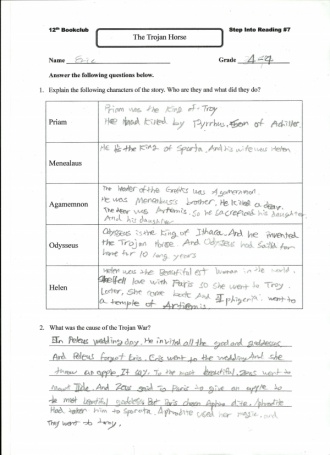 12th Bookclub Step Into Reading #7
The Trojan Horse
Name Eric Grade 4-4
Answer the following questions below.
1. Explain the following characters of the story. Who are they and what did they do?
Priam
Priam was the King of Troy
He had killed by Pyrrhus, son of Achilles.
Menealaus
He is the King of Sparta. And his wife was Helen
Agamemnon
The leader of the Greeks was Agamemnon.
He was Menelaus's brother. He killed a deer.
The deer was Artemis. So he sacrificed his daughter
And his daughter
Odysseus
Odysseus is the King of Ithaca. And he invented
the Trojan Horse. And Odysseus had Sailed
home for 10 long years
Helen
Helen was the Beautiful est woman in the world.
She fell love with Paris so she went to Troy.
Later, She come back And Iphigenia went to
a temple of Artemis.
2. What was the cause of the Trojan War?
In Peleus wedding day. He invited all the god and goddesses
And Peleus forgot Eris. Eris went to the wedding And she
threw an apple. It say. To the most beautiful. Zeus went to
And Zeus said To Paris to give an apple to
the most beautiful goddess But Paris chosen Aphrodite. Aphrodite
Had taken him to Sparta. Aphrodite used her magic. and
They went to troy.